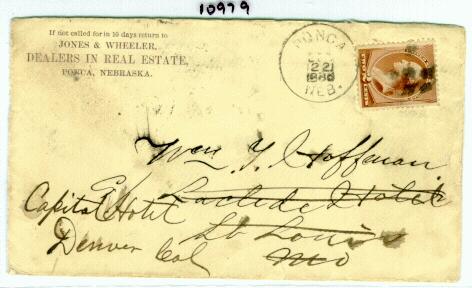 10979
If not called for in 10 days return to
JONES & WHEELER,
DEALERS IN REAL ESTATE,
PONCA, NEBRASKA.
PONCA
22
188
NEB.
Wm Y. Hoffman
Laclede Hotel
Capital Hotel
St Louis
Mo
Denver Col